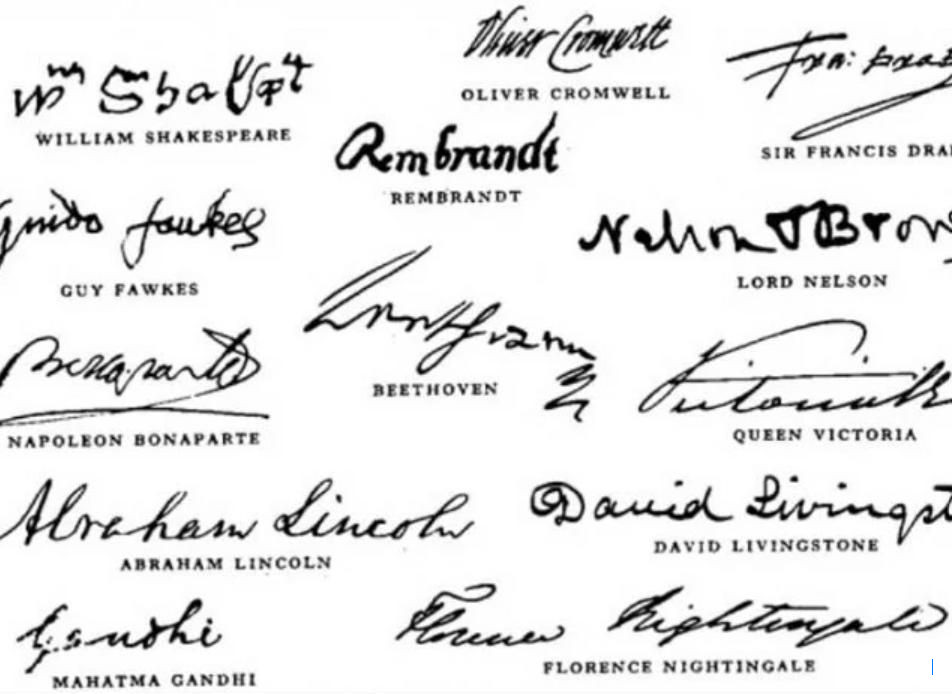 Oliver Cromwell
OLIVER CROMWELL
Wm Shakspt
WILLIAM SHAKESPEARE
Fra: Drak
SIR FRANCIS DRA
Rembrandt
REMBRANDT
Guido fawkes
GUY FAWKES
Nelson & Bron
LORD NELSON
BEETHOVEN
Bonaparte
NAPOLEON BONAPARTE
Victoria R
QUEEN VICTORIA
Abraham Lincoln
ABRAHAM LINCOLN
David Livingst
DAVID LIVINGSTONE
Gandhi
MAHATMA GANDHI
Florence Nightingale
FLORENCE NIGHTINGALE